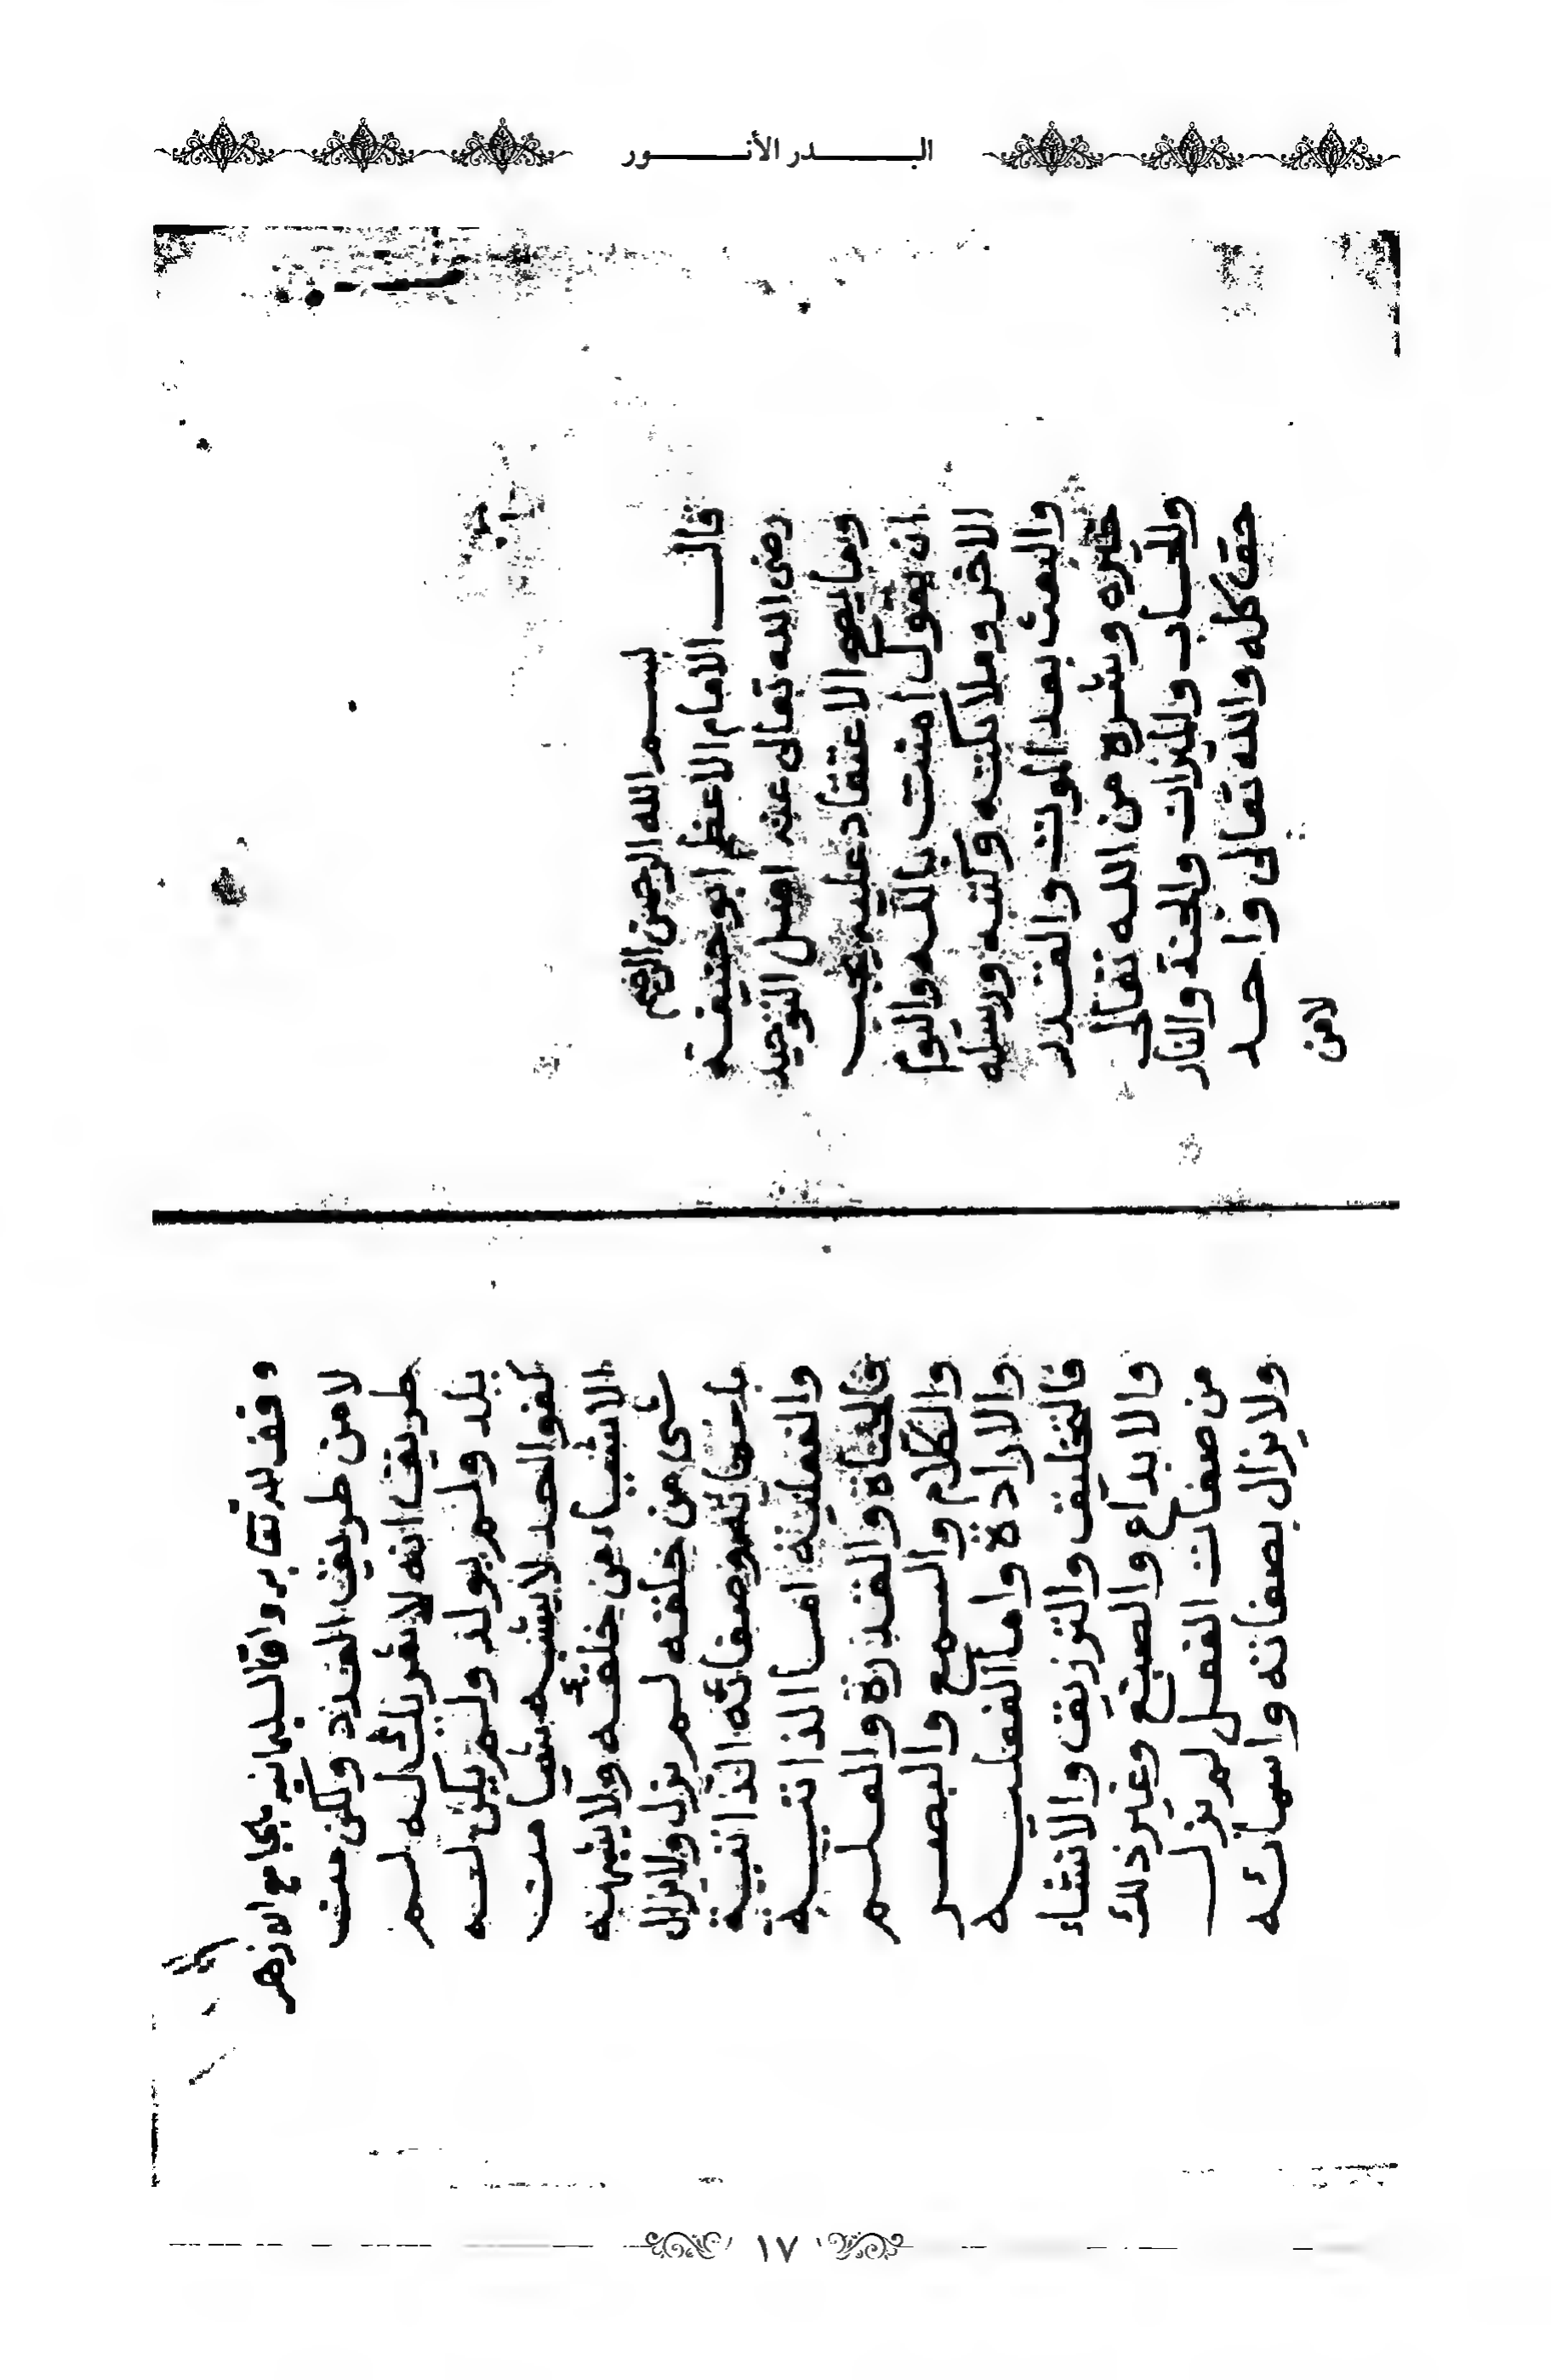 البدر الأنور
بسم الله الرحمن الرحيم
قال الامام الاعظم ابو حنيفة
رضى الله تعالى عنه اصل التوحيد
وما يصح الاعتقاد عليه يجب
ان يقول امنت بالله واليوم
الاخر وملائكته وكتبه ورسله
والبعث بعد الموت والقدر
خيره وشره من الله تعالى
والحساب والميزان والجنة والنار
حق كله والله تعالى واحد
لا من
وقف لله تعالى برواق السليمانيه بجامع الازهر
لا من طريق العدد ولكن من
طريق انه لا شريك له لم
يلد ولم يولد ولم يكن له
كفوا احد لا يشبه شيا من
الاشياء من خلقه ولا يشبهه
شى من خلقه لم يزل ولا يزال
باسمائه وصفاته الذاتية
والفعلية اما الذاتيه
فالحياة والقدرة والعلم
والكلام والسمع والبصر
والارادة واما الفعليه
فالتخليق والترزيق والانشاء
والابداع والصنع وغير ذلك
من صفات الفعل لم يزل
ولا يزال بصفاته واسمائه
١٧